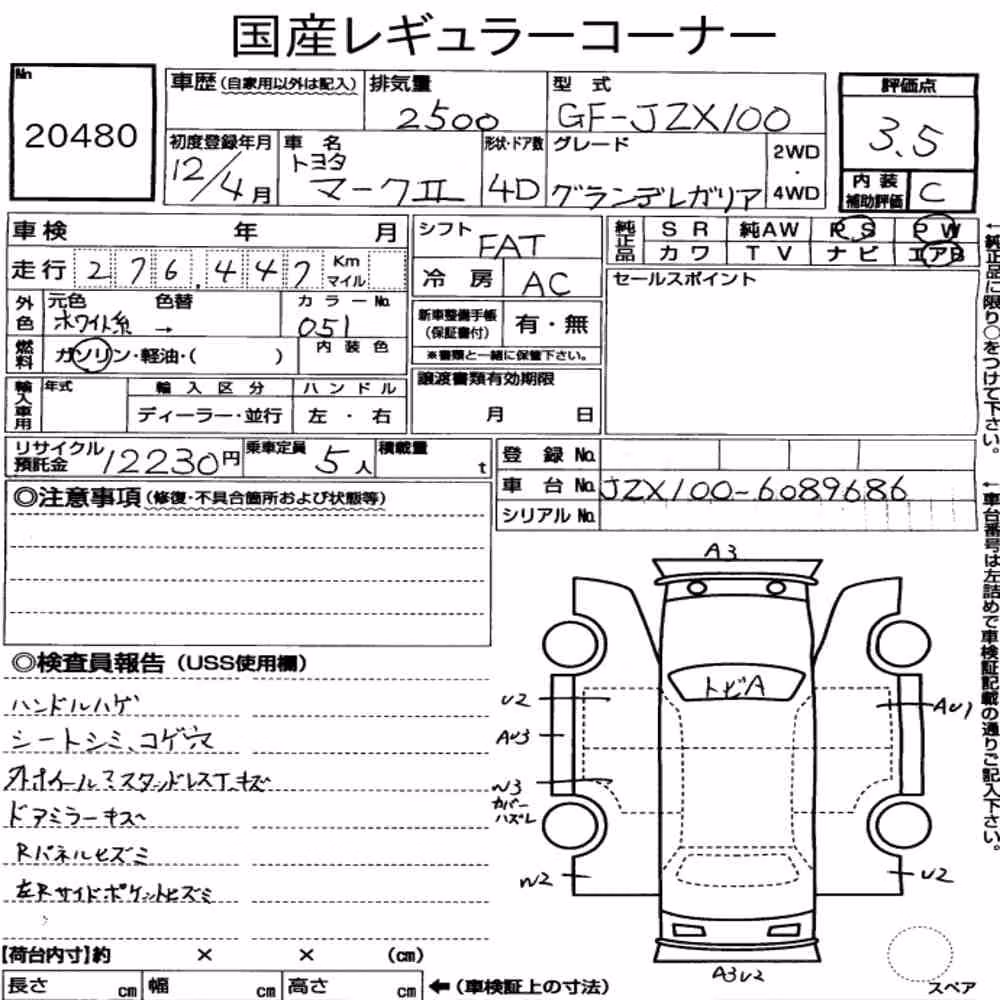 国産レギュラーコーナー
No
20480
車歴(自家用以外は記入)
排気量
2500
型 式
GF-JZX100
評価点
3.5
初度登録年月
12/4月
車 名
トヨタ
マークII
形状・ドア数
4D
グレード
グランデレガリア
2WD
・
4WD
内 装
補助評価
C
車検 年 月
シフト
FAT
純正品
S R 純AW P.S P W
カ ワ T V ナ ビ エアB
走行 276,447 Km マイル
冷 房
AC
セールスポイント
外色
元色 色替
ホワイト系 →
カ ラ ー No.
051
新車整備手帳
(保証書付)
有・無
※書類と一緒に保管下さい。
燃料
ガソリン・軽油・( )
内 装 色
輸入車用
年式
輸 入 区 分
ディーラー・並行
ハ ン ド ル
左 ・ 右
譲渡書類有効期限
月 日
←純正品に限り○をつけて下さい。
リサイクル
預託金
12230円
乗車定員
5人
積載量
t
登 録 No.
車 台 No. JZX100-6089686
シリアル No.
←車台番号は左詰めで車検証記載の通りご記入下さい。
◎注意事項(修復・不具合箇所および状態等)
A3
トビA
U2
AU3
W3
カバー
ハズレ
W2
AU1
U2
A3U2
スペア
◎検査員報告(USS使用欄)
ハンドルハゲ
シートシミ、コゲ穴
ドアミラーキズ
Rパネルヒズミ
左Rサイドポケットヒズミ
【荷台内寸】約 × × (cm)
長さ cm 幅 cm 高さ cm ←(車検証上の寸法)